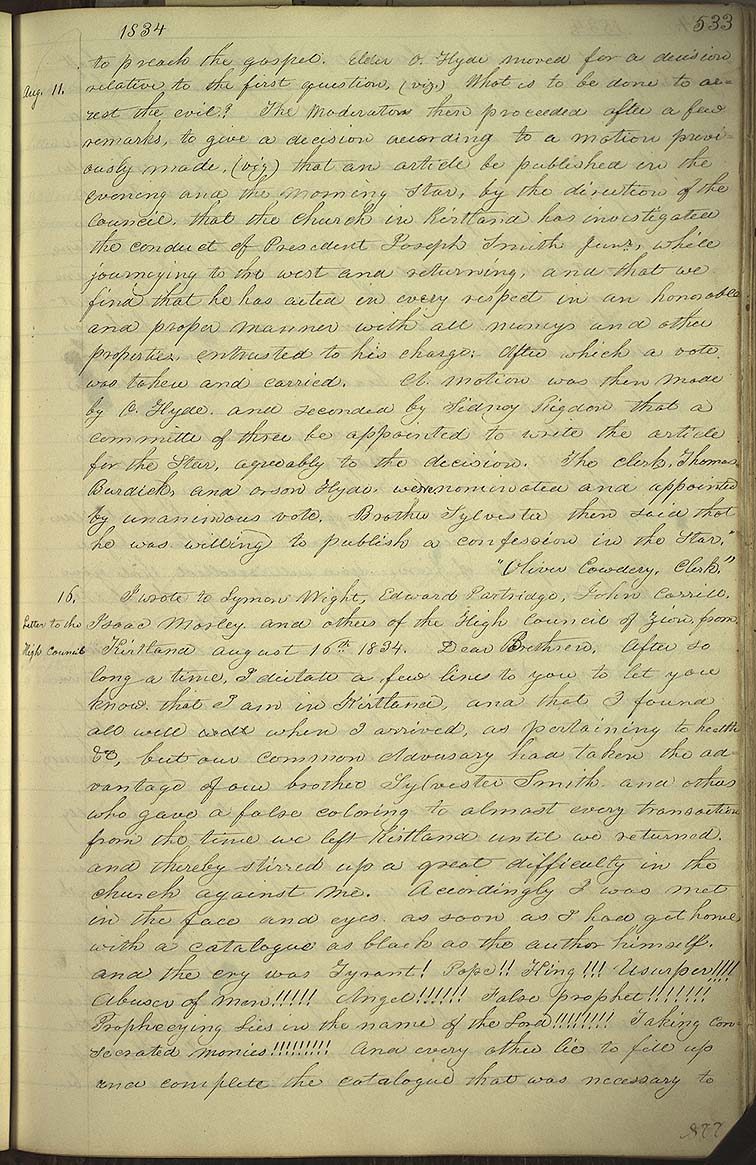 1834
533
to preach the gospel. Elder O. Hyde moved for a decision
Aug. 11.
relative to the first question, (viz) What is to be done to ar-
rest the evil? The Moderators then proceeded after a few
remarks, to give a decision according to a motion previ-
ously made, (viz) that an article be published in the
evening and the Morning Star, by the direction of the
Council, that the church in Kirtland has investigated
the conduct of President Joseph Smith Junr, while
journeying to the west and returning, and that we
find that he has acted in every respect in an honorable
and proper manner with all moneys and other
properties, entrusted to his charge: After which a vote
was taken and carried. A motion was then made
by O. Hyde. and seconded by Sidney Rigdon that a
committe of three be appointed to write the article
for the Star, agreeably to the decision. The clerk, Thomas
Burdick, and orson Hyde. were nominated and appointed
by unanimous vote. Brother Sylvester then said that
he was willing to publish a confession in the Star."
"Oliver Cowdery, Clerk."
16.
I wrote to Lyman Wight, Edward Partridge, John Corrill.
Letter to the
Isaac Morley and others of the High Council of Zion, from
High Council
Kirtland august 16th 1834. Dear Brethren, After so
long a time, I dictate a few lines to you to let you
know. that I am in Kirtland, and that I found
all well when I arrived, as pertaining to health
&c, but our common Adversary had taken the ad-
vantage of our brother Sylvester Smith and others
who gave a false coloring to almost every transaction
from the time we left Kirtland until we returned.
and thereby stirred up a great difficulty in the
church against me. Accordingly I was met
in the face and eyes as soon as I had got home
with a catalogue as black as the author himself.
and the cry was Tyrant! Pope!! King!!! Usurper!!!!
Abuser of men!!!!! Angel!!!!!! False prophet!!!!!!!
Prophecying Lies in the name of the Lord!!!!!!!! Taking con-
secrated monies!!!!!!!!! And every other lie to fill up
and complete the catalogue that was necessary to